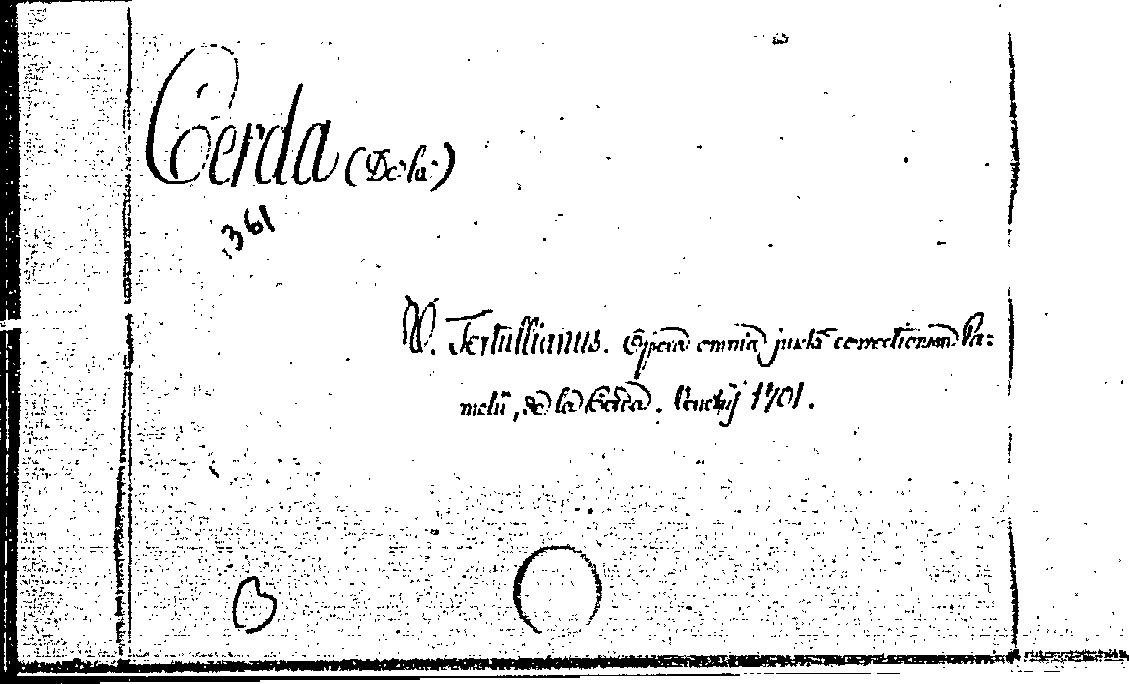 Cerda (De la)
361
V. Tertullianus. Opera omnia juxta correctionem Pa:
melii, de la Cerda. Venetiis 1701.